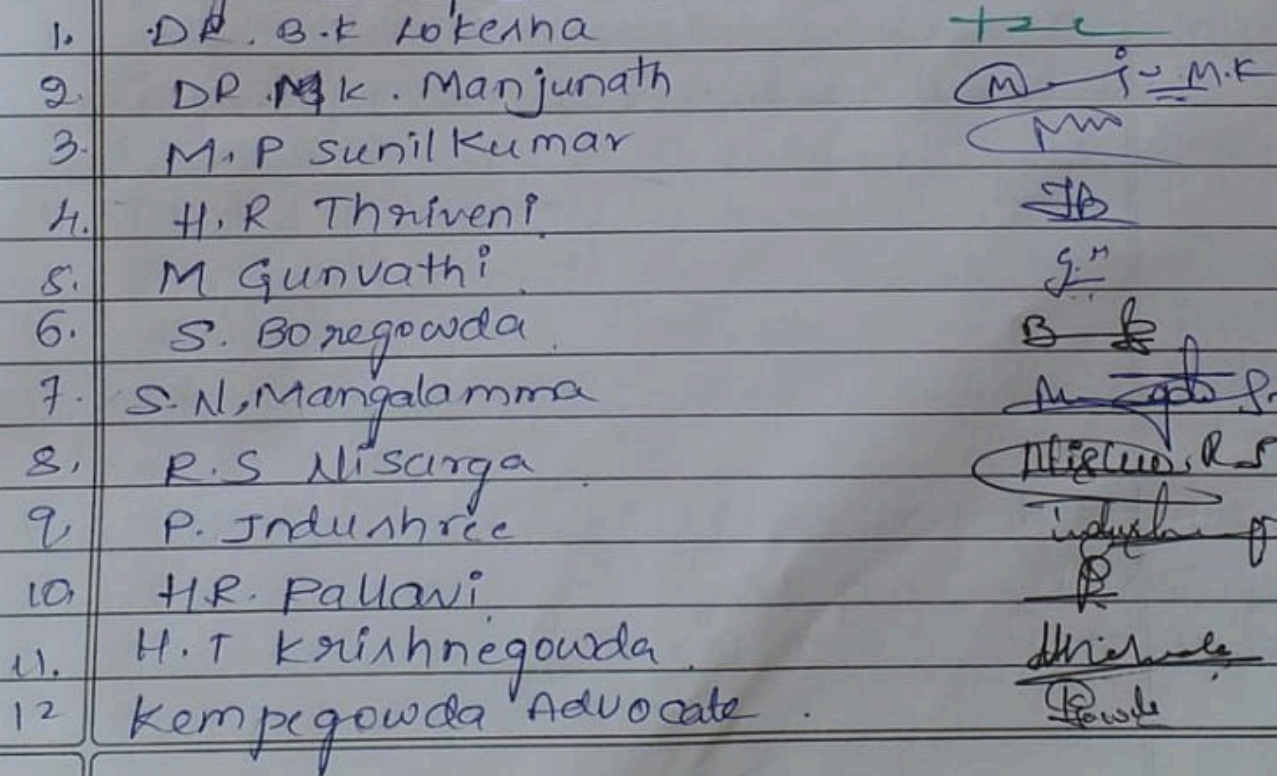 1. DR. B.K Lokesha
2. DR. M K. Manjunath M.K
3. M.P Sunil Kumar
4. H.R Thriveni
5. M Gunvathi G.M
6. S. Boregowda B
7. S.N, Mangalamma
8. R.S Nisarga R.S
9 P. Indushree
10, H.R. Pallavi
11. H.T Krishnegowda
12 Kempegowda Advocate